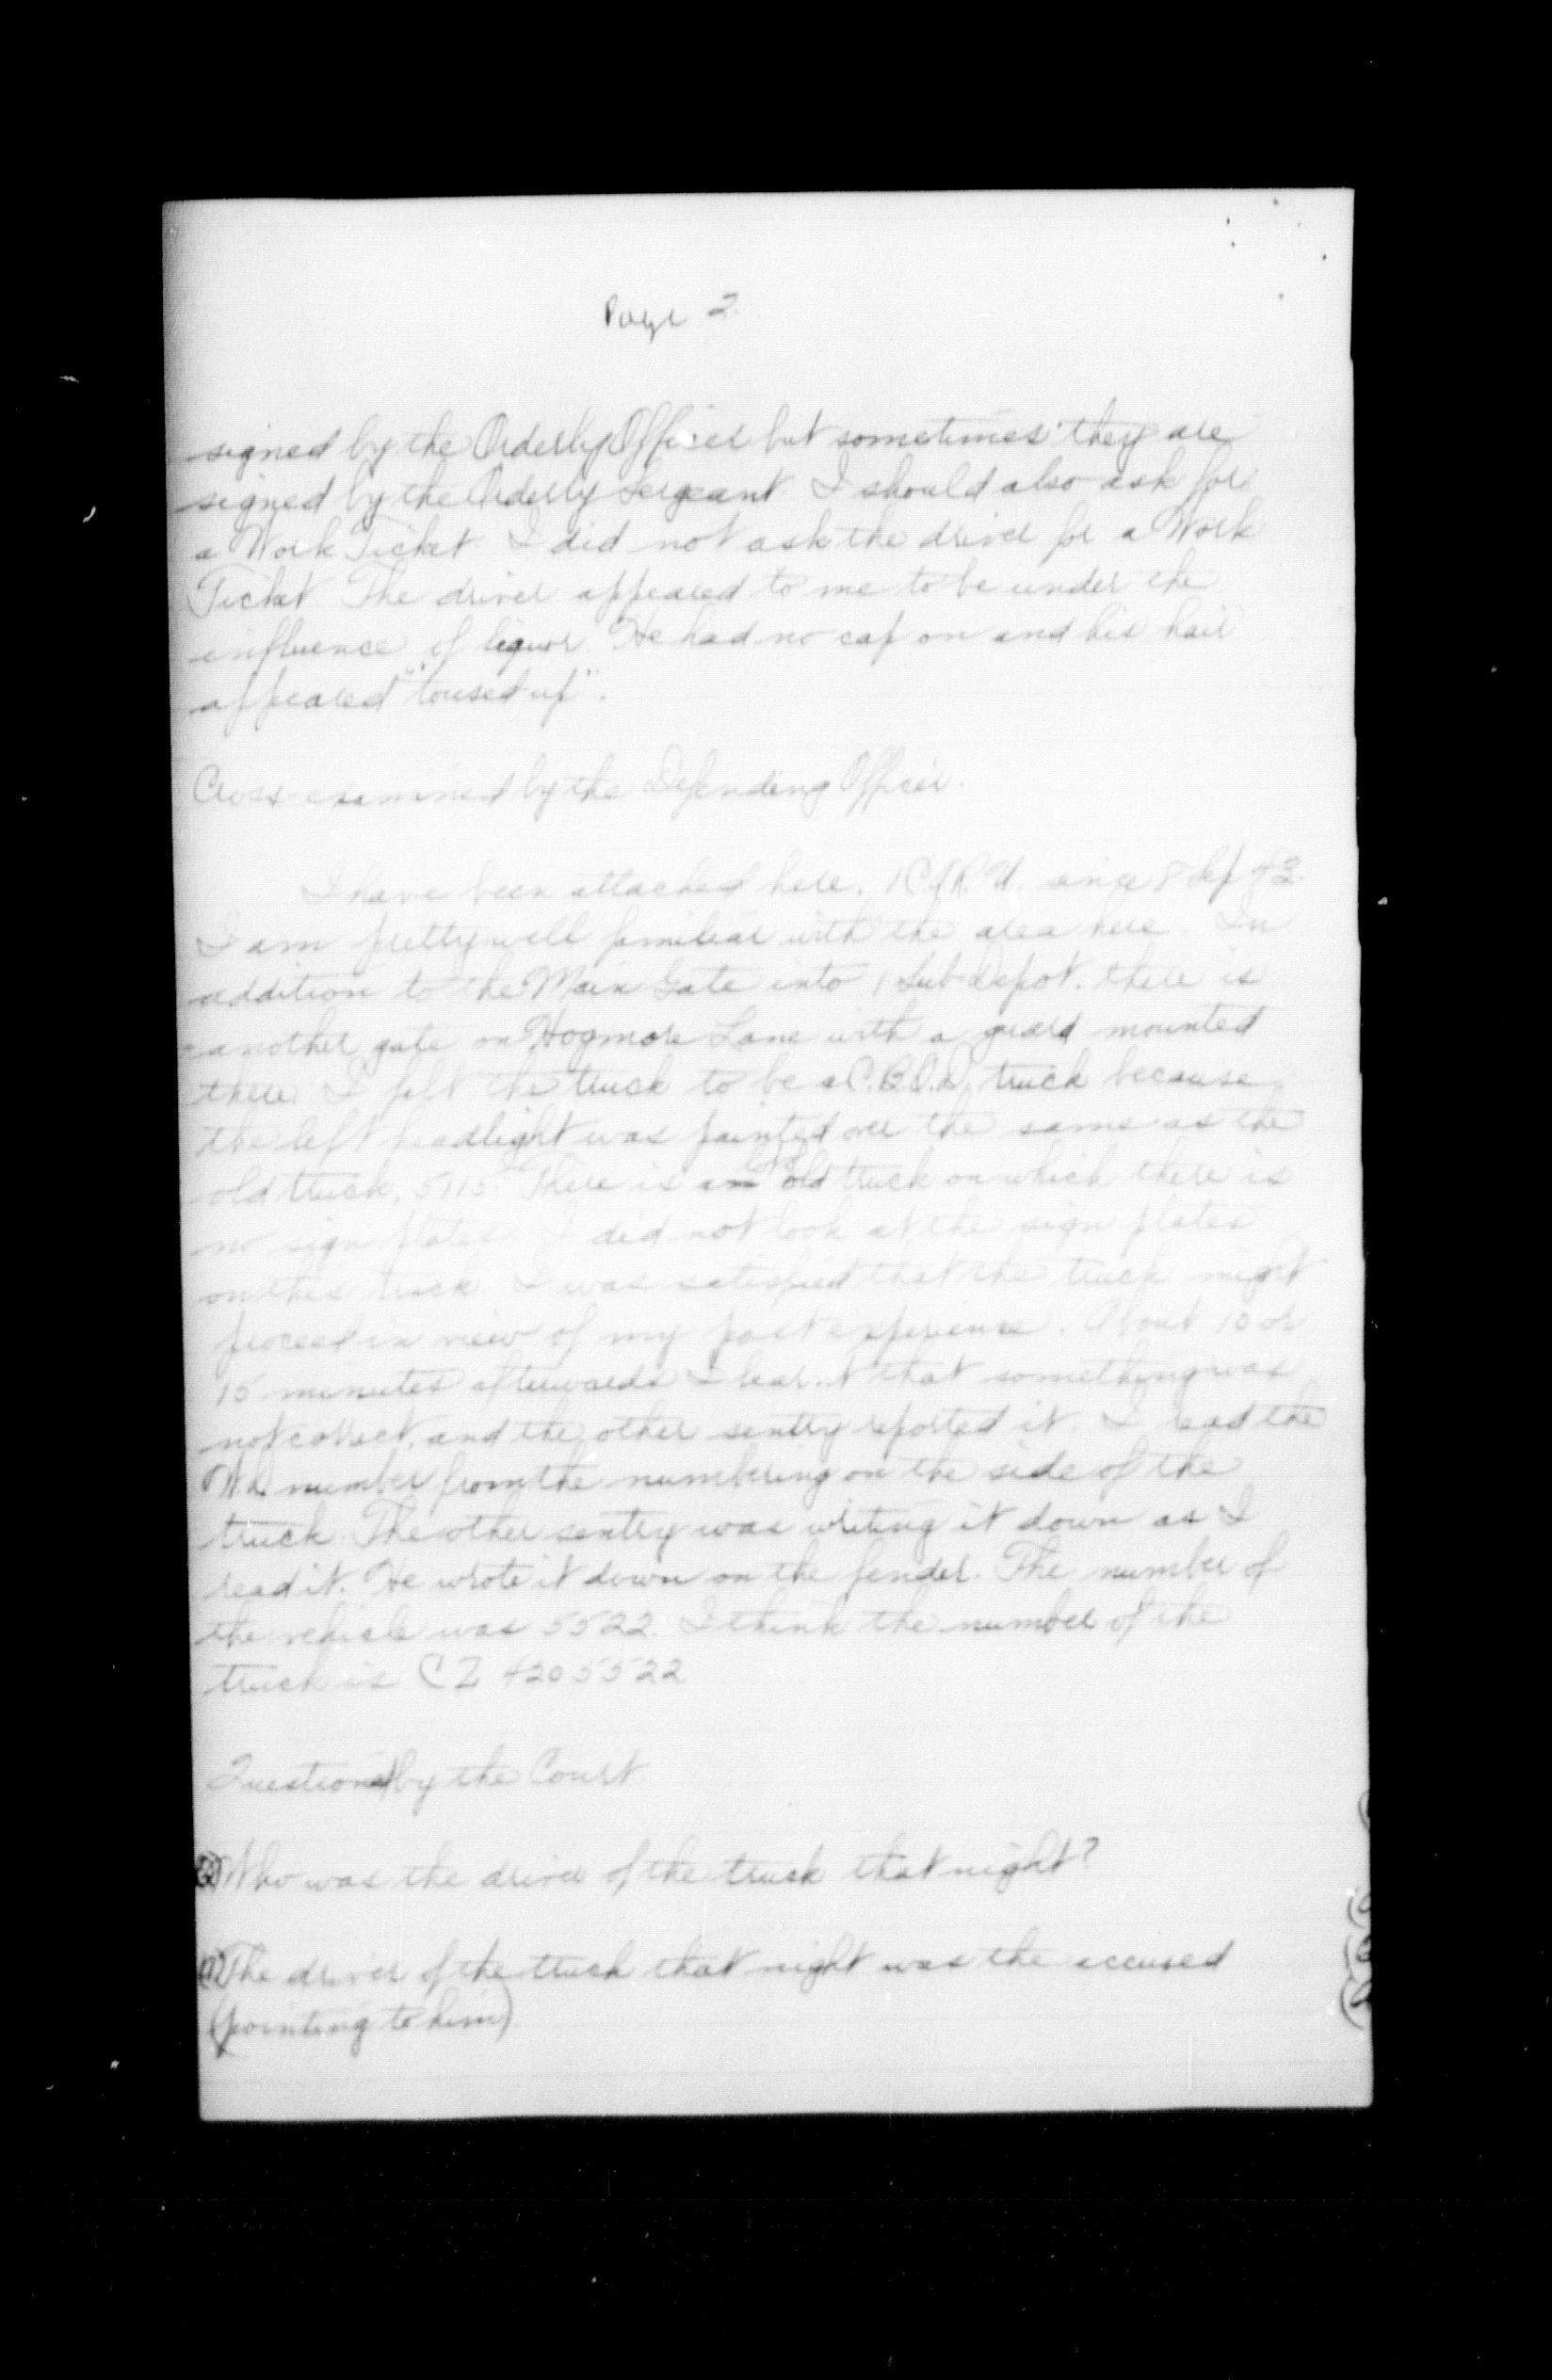 Page 2.
signed by the Orderly Officer but sometimes they are
signed by the Orderly Sergeant I should also ask for
a Work Ticket. I did not ask the driver for a Work
Ticket The driver appeared to me to be under the
influence of liquor. He had no cap on and his hair
appeared "toused up".
Cross-examined by the Defending Officer.
I have been attached here, since 8 Sep 43.
I am pretty well familiar with the area here. In
addition to the Main Gate into 1 Sub Depot. there is
another gate on Hogmore Lane with a guard mounted
there. I felt the truck to be a C.B.O.D. truck because
the left headlight was painted over the same as the
old truck, 5115. There is old truck on which there is
no sign plates. I did not look at the sign plates
on this truck. I was satisfied that the truck might
proceed in view of my past experience. About 10 or
15 minutes afterwards I learnt that something was
not correct, and the other sentry reported it. I read the
W.D. number from the numbering on the side of the
truck. The other sentry was writing it down as I
read it. He wrote it down on the fender. The number of
the vehicle was 5522. I think the number of the
truck is CZ 4205522
Questioned by the Court.
Who was the driver of the truck that night?
The driver of the truck that night was the accused
(pointing to him)